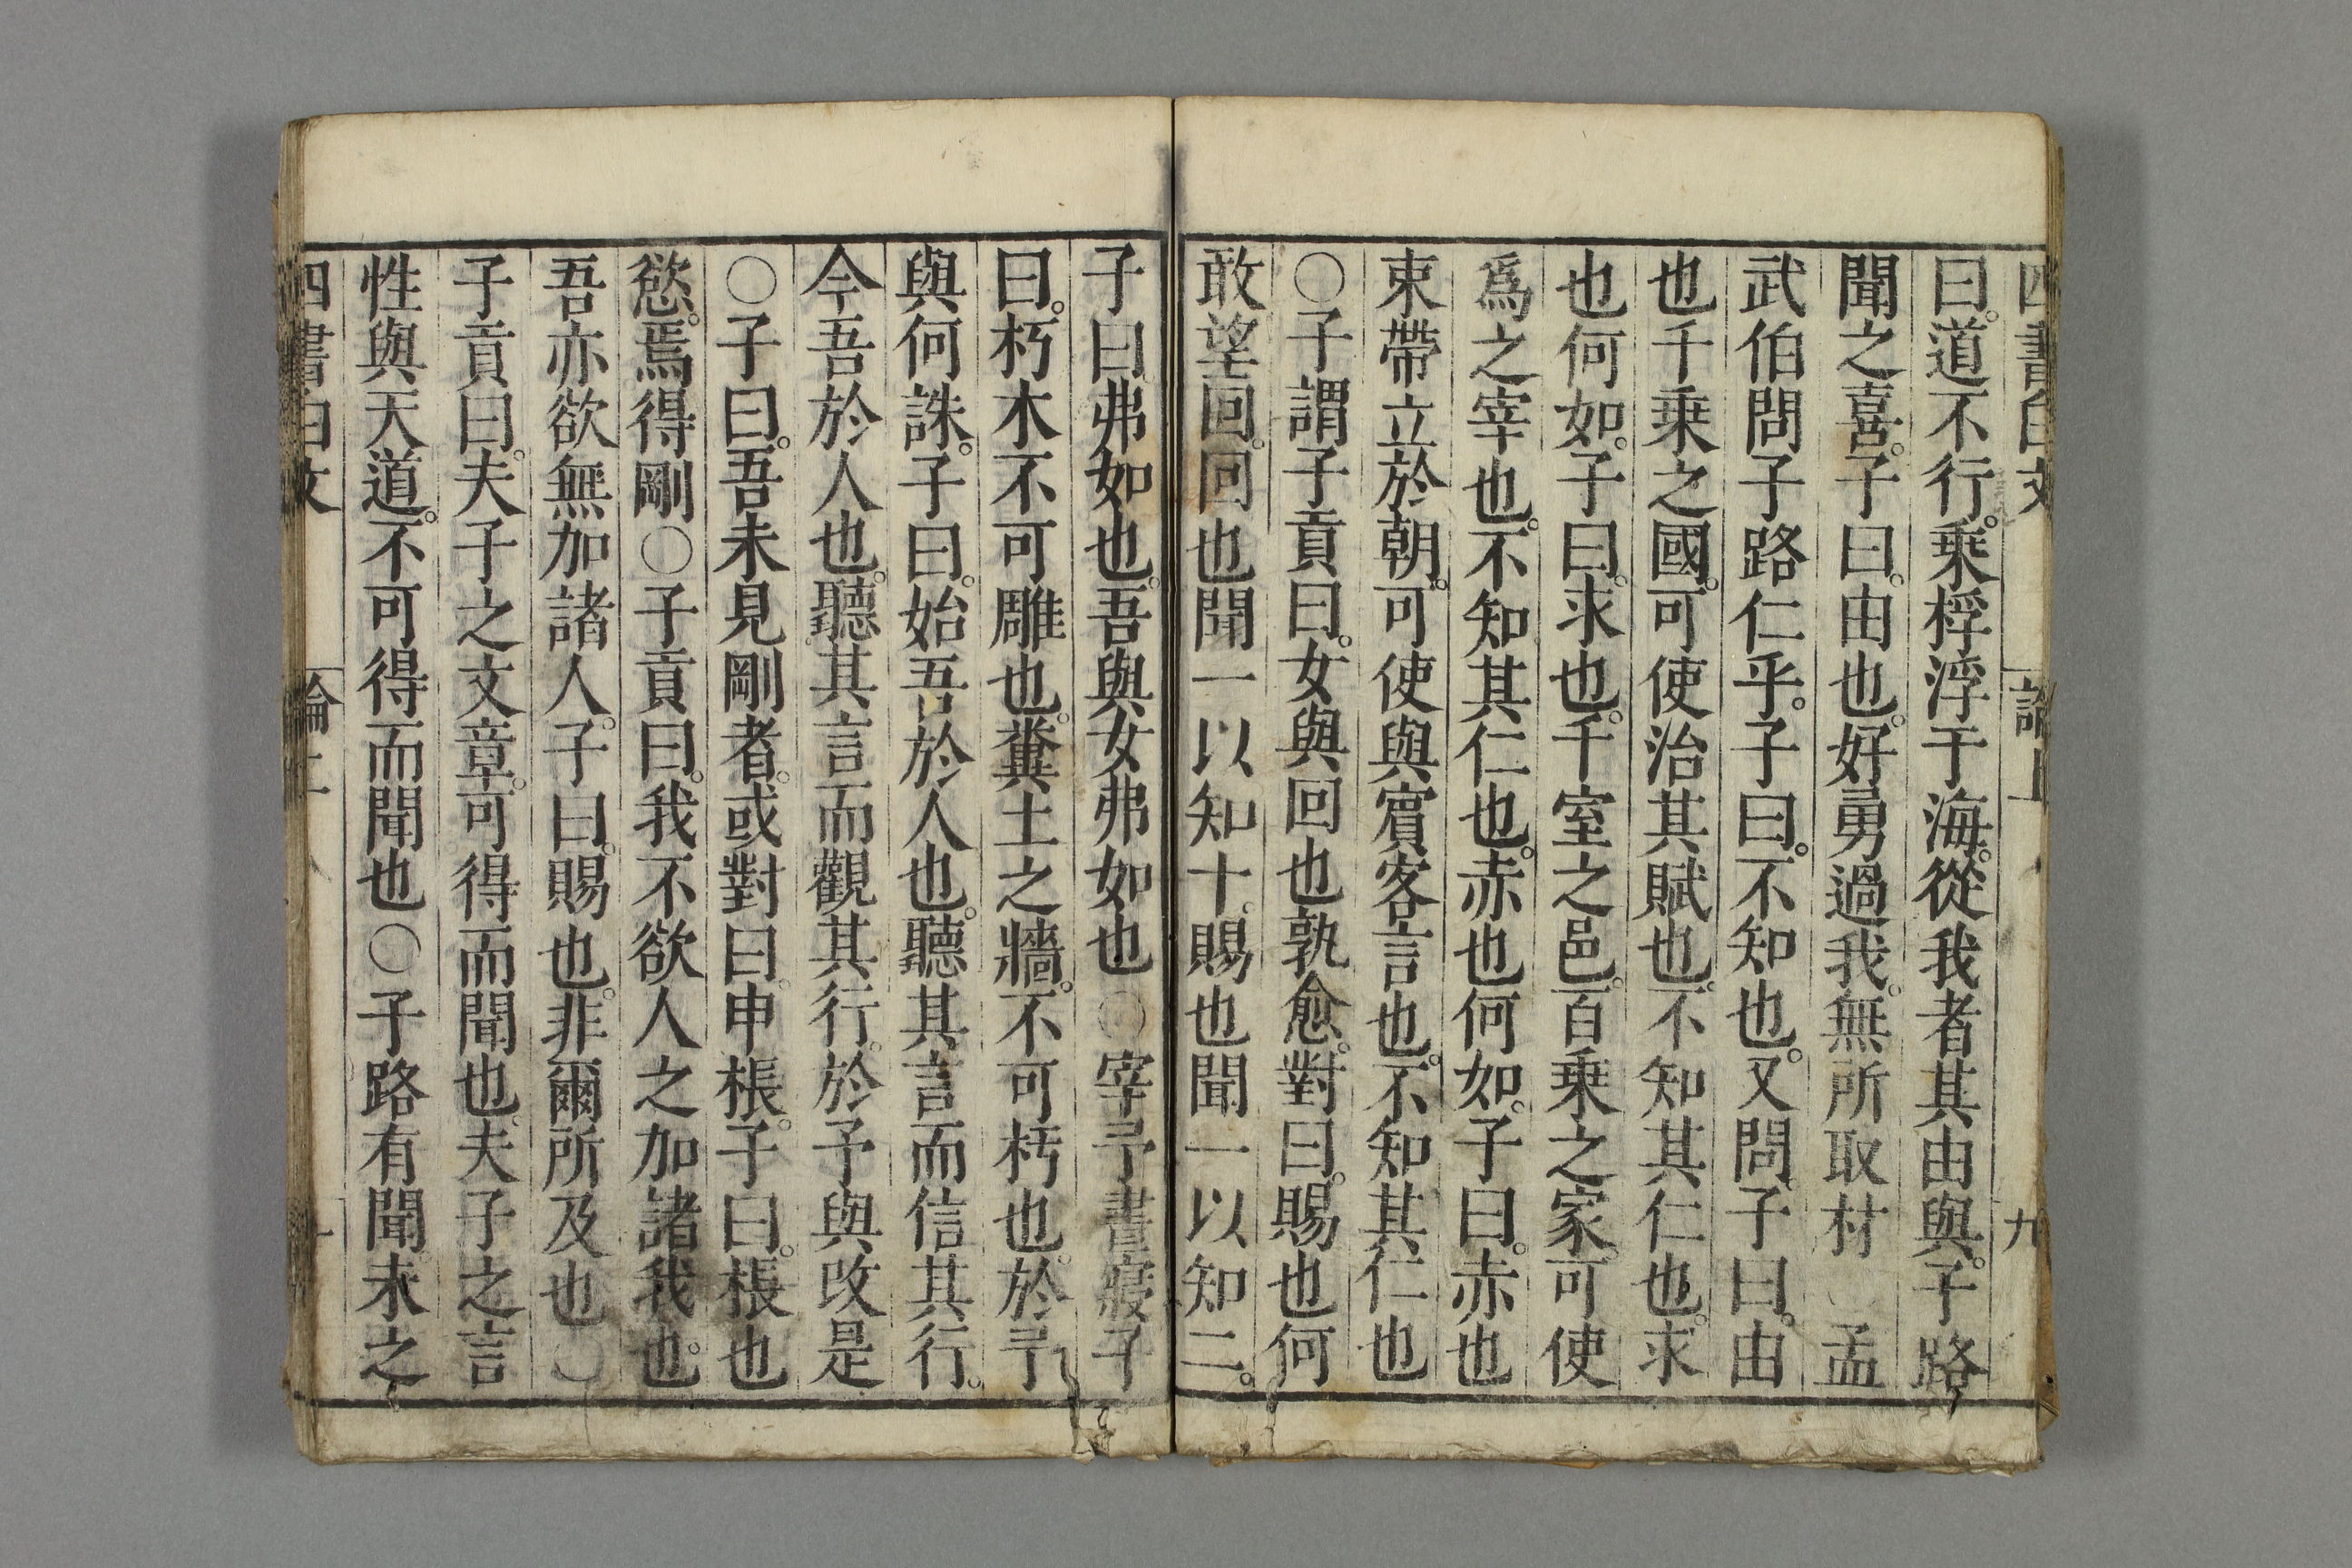 四書白文 論上 九
曰。道不行。乗桴浮于海。從我者其由與。子路
聞之喜。子曰。由也。好勇過我。無所取材○孟
武伯問子路仁乎。子曰。不知也。又問。子曰。由
也千乗之國。可使治其賦也。不知其仁也。求
也何如。子曰。求也。千室之邑。百乗之家。可使
爲之宰也。不知其仁也。赤也何如。子曰。赤也
束帶立於朝。可使與賔客言也。不知其仁也
○子謂子貢曰。女與回也孰愈。對曰。賜也何
敢望回。回也聞一以知十。賜也聞一以知二。
子曰弗如也。吾與女弗如也○宰予晝寢子
曰。朽木不可雕也。糞土之牆。不可杇也。於予
與何誅。子曰。始吾於人也。聽其言而信其行。
今吾於人也。聽其言而觀其行。於予與改是
○子曰。吾未見剛者。或對曰。申棖。子曰。棖也
慾。焉得剛○子貢曰。我不欲人之加諸我也。
吾亦欲無加諸人。子曰。賜也。非爾所及也○
子貢曰。夫子之文章。可得而聞也。夫子之言
性與天道。不可得而聞也○子路有聞未之
四書白文 論上